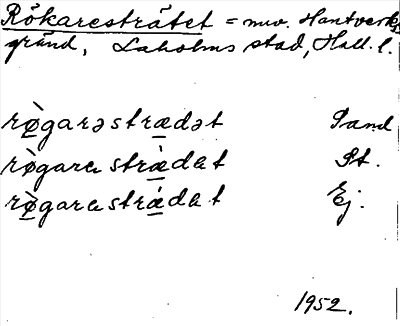 Rökaresträtet = nuv. Hantverks
gränd, Laholms stad, Hall. l.
rø̀garəstrædət Sand
rø̀garastræ̀dat St.
rø̀garastræ̀dat Ej.
1952.